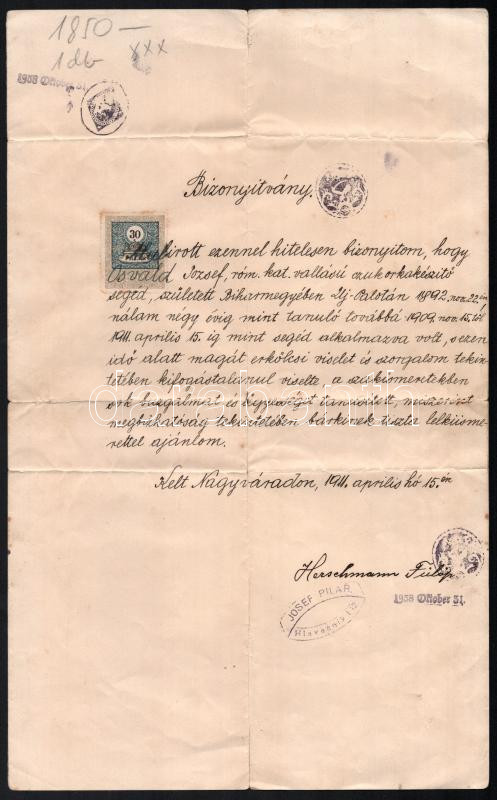 1850—
1 db xxx
1938 Oktober 31.
Bizonyitvány.
30
Alulirott ezennel hitelesen bizonyitom, hogy
Osvald József, róm. kat. vallásu czukorkakészitő
segéd, született Biharmegyében Uj-Palotán 1892. nov. 22én
nálam négy évig mint tanuló továbbá 1909. nov. 15.től
1911. április 15. ig mint segéd alkalmazva volt, s ezen
idő alatt magát erkölcsi viselet és szorgalom tekin-
tetében kifogástalanul viselte, a szakismeretekben
sok buzgalmat és képességet tanusitott,
megbizhatóság tekintetében bárkinek tiszta lelkiisme-
rettel ajánlom.
Kelt Nagyváradon, 1911. április hó 15.én
Herschmann Fülöp
1938 Oktober 31.
JOSEF PILAŘ.